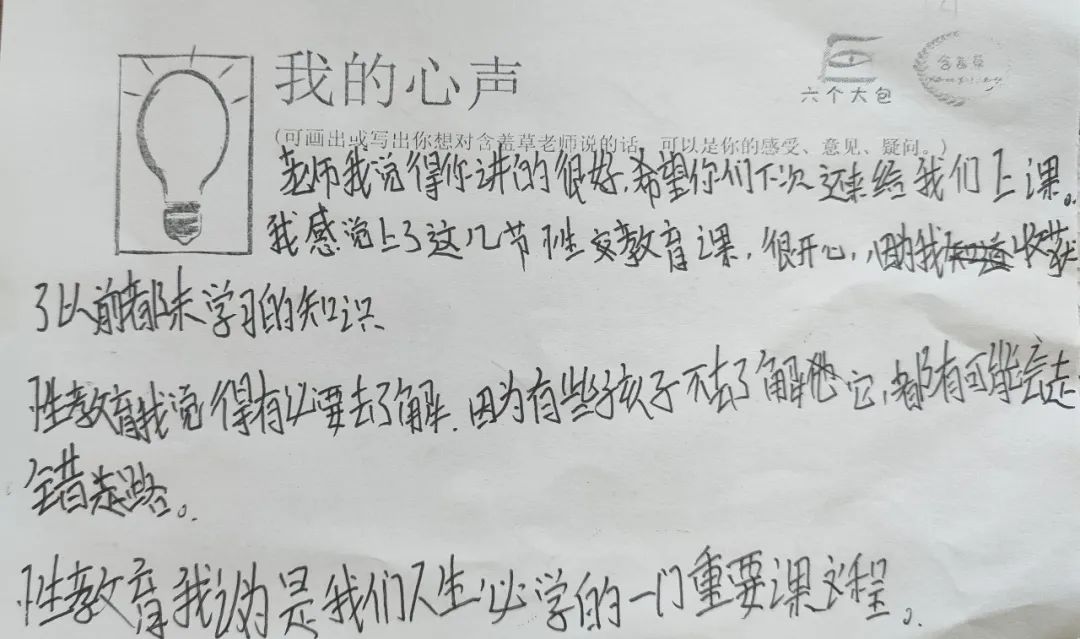 我的心声
六个大包
含羞草
(可画出或写出你想对含羞草老师说的话，可以是你的感受、意见、疑问。)
老师我觉得你讲的很好，希望你们下次还来给我们上课。
我感觉上了这几节性教育课，很开心，因为我收获
了以前都未学习的知识
性教育我觉得有必要去了解，因为有些孩子不去了解它，都有可能会走
错路。
性教育我认为是我们人生必学的一门重要课程。